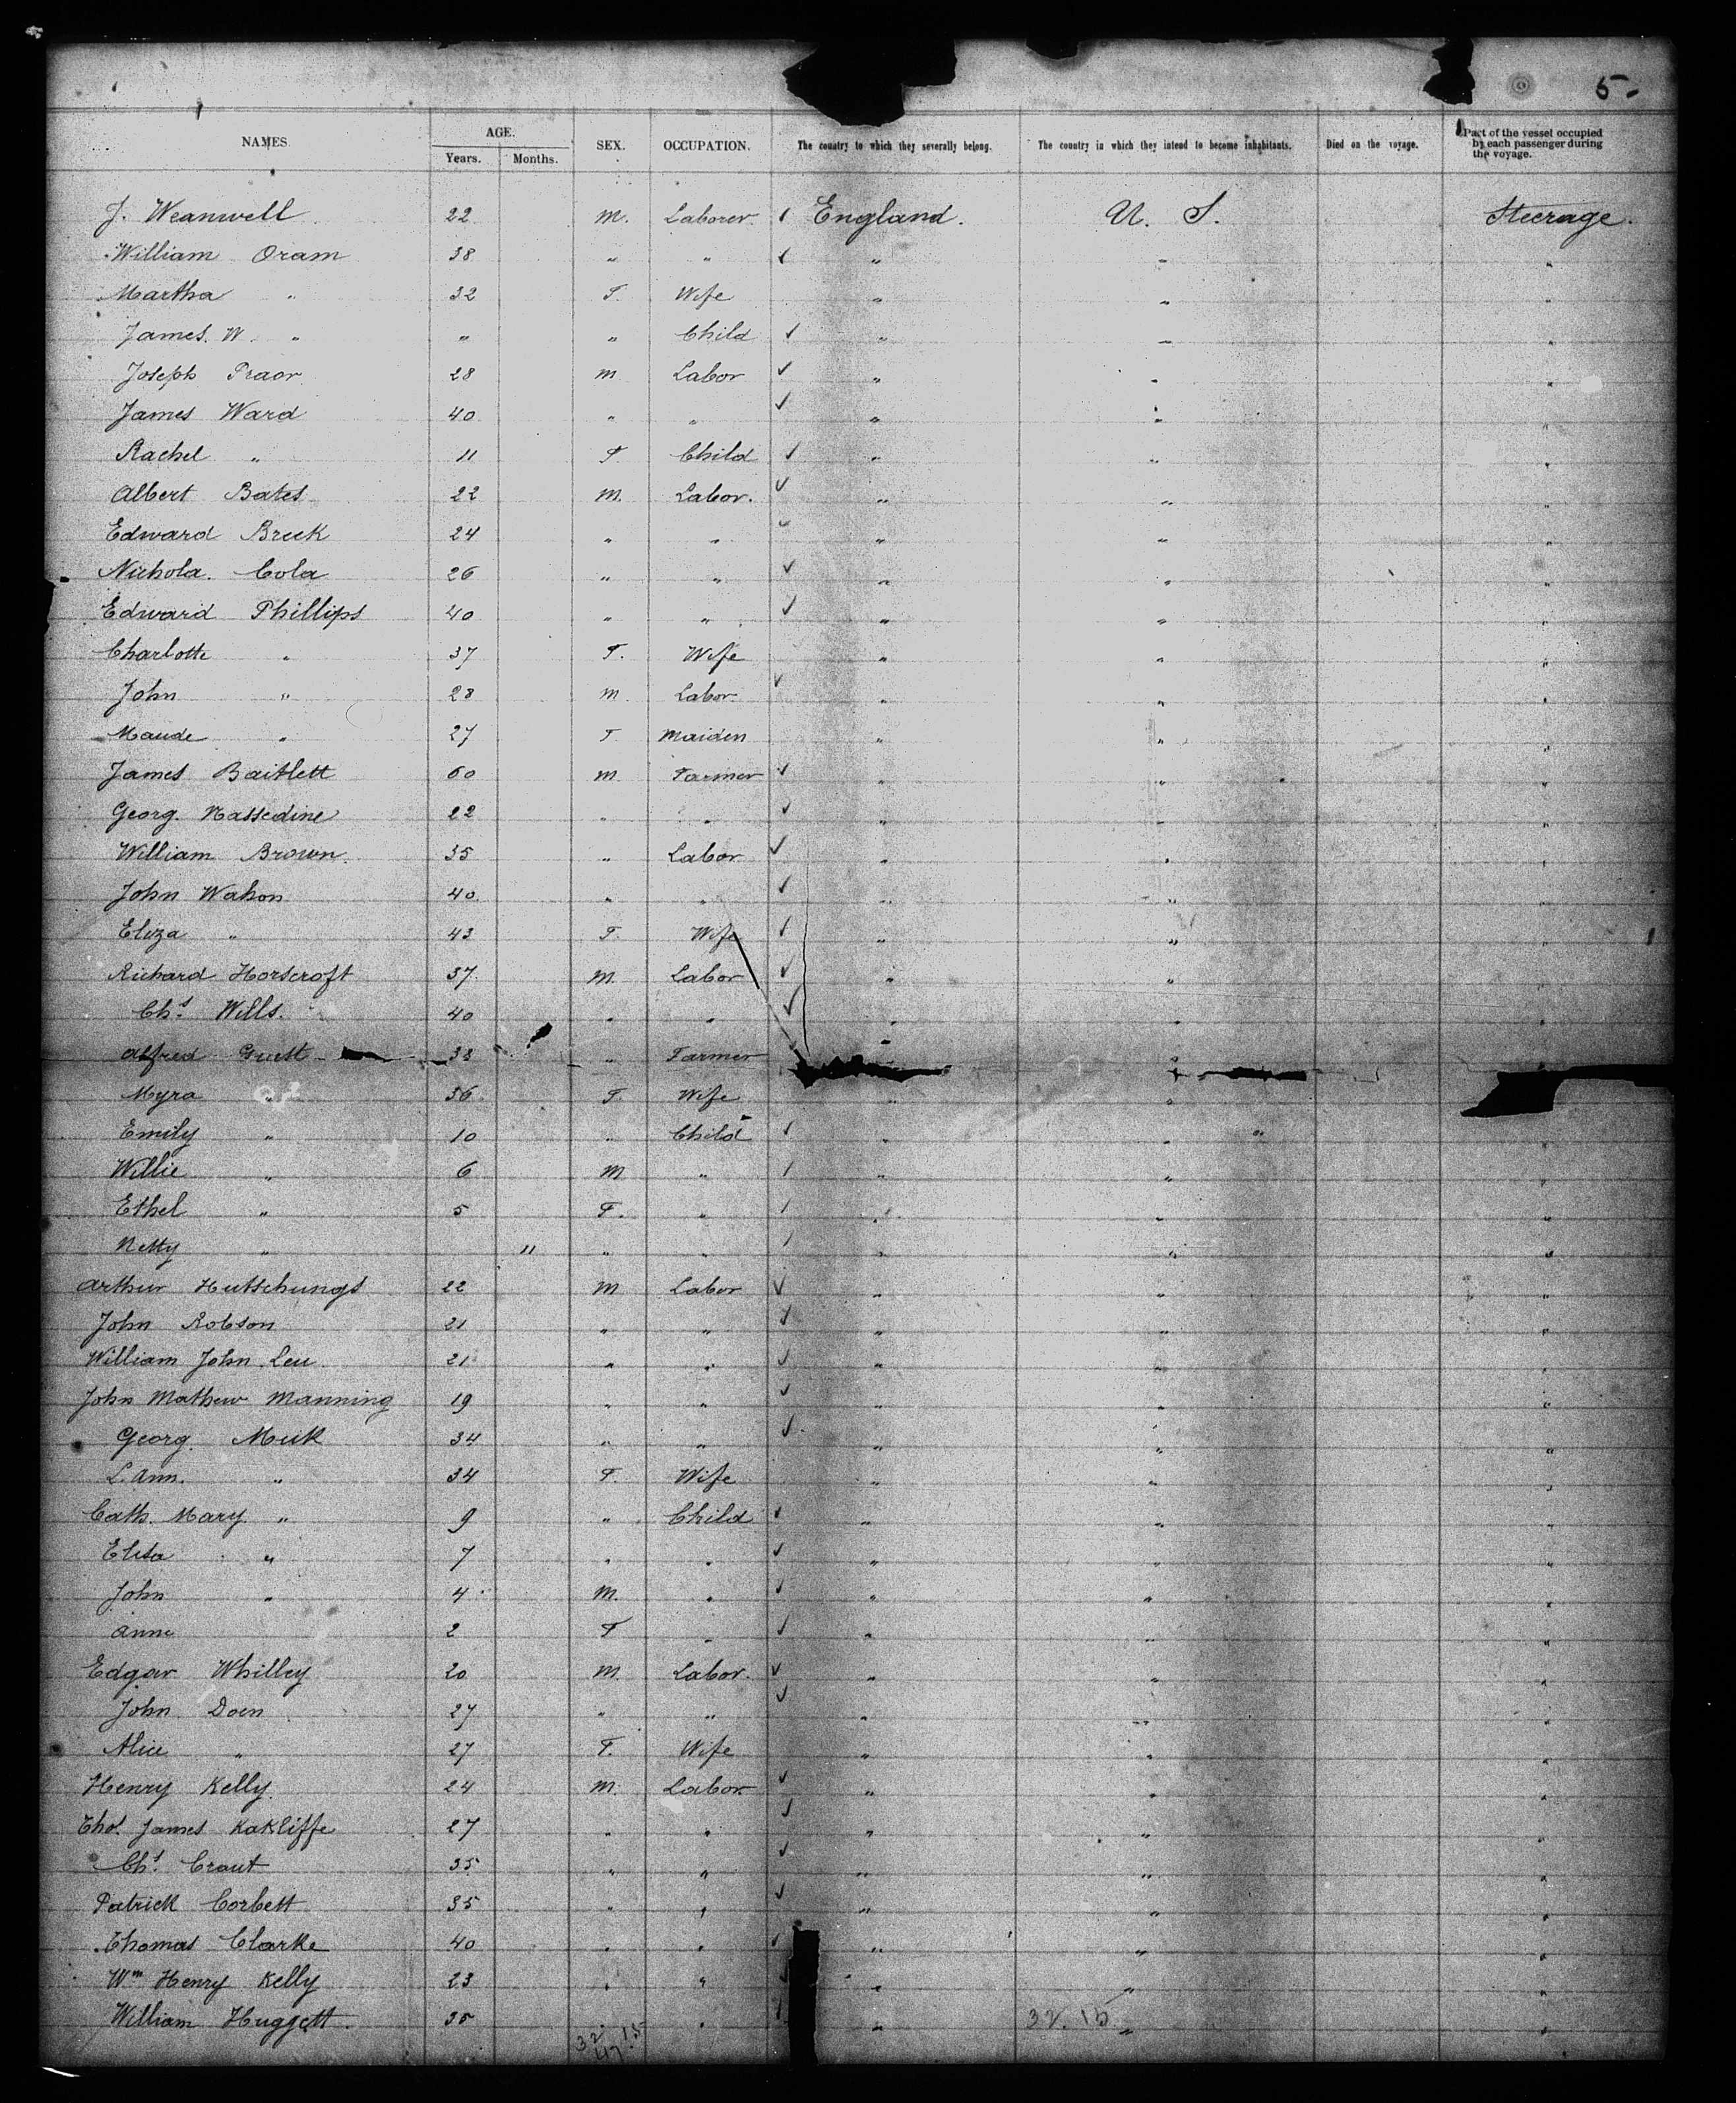 5-
NAMES. AGE. Years. Months. SEX. OCCUPATION. The country to which they severally belong. The country in which they intend to become inhabitants. Died on the voyage. Part of the vessel occupied by each passenger during the voyage.
J. Weanwell 22 M. Laborer ✓ England. U. S. Steerage.
William Oram 38 " " ✓ " " "
Martha " 32 F. Wife " " "
James. W. " " " Child ✓ " " "
Joseph Praor 28 M Labor ✓ " " "
James Ward 40 " " ✓ " " "
Rachel " 11 F. Child ✓ " " "
Albert Bates 22 M. Labor. ✓ " " "
Edward Breek 24 " " ✓ " " "
Nichola. Cola 26 " " ✓ " " "
Edward Phillips 40 " " ✓ " " "
Charlotte " 37 F. Wife " " "
John " 28 M. Labor. ✓ " " "
Maude " 27 F. Maiden " " "
James Baitlett 60 M. Farmer ✓ " " "
Georg. Nassedine 22 " " ✓ " " "
William Brown. 35 " Labor ✓ " " "
John Wahon 40. " " ✓ " " "
Eliza " 43 F. Wife ✓ " " "
Richard Horscroft 37. M. Labor ✓ " " "
Chs. Wills. 40 " " ✓ " " "
Alfred Guest 38 " Farmer " "
Myra " 36 F Wife " "
Emily " 10 " Child ✓ " " "
Willie " 6 M " ✓ " " "
Ethel " 5 F. " ✓ " " "
Netty " 11 " " ✓ " " "
Arthur Hutschungs 22 M Labor ✓ " " "
John Robson 21 " " ✓ " " "
William John Leu. 21 " " ✓ " " "
John Mathew Manning 19 " " ✓ " " "
Georg. Muk 34 " " ✓ " " "
L. Ann. " 34 F. Wife " " "
Cath. Mary " 9 " Child ✓ " " "
Elisa " 7 " " ✓ " " "
John " 4 M. " ✓ " " "
Anne 2 F " ✓ " " "
Edgar Whilley 20 M. Labor. ✓ " " "
John Doen 27 " " ✓ " " "
Alice " 27 F. Wife " " "
Henry Kelly. 24 M. Labor. ✓ " " "
Thos. James Kakliffe 27 " " ✓ " " "
Chs. Crout 35 " " ✓ " " "
Patrick Corbett 35 " " ✓ " " "
Thomas Clarke 40 " " ✓ " " "
Wm Henry Kelly 23 " " ✓ " " "
William Huggett. 35 " " ✓ " " "
32. 15 32. 15
47